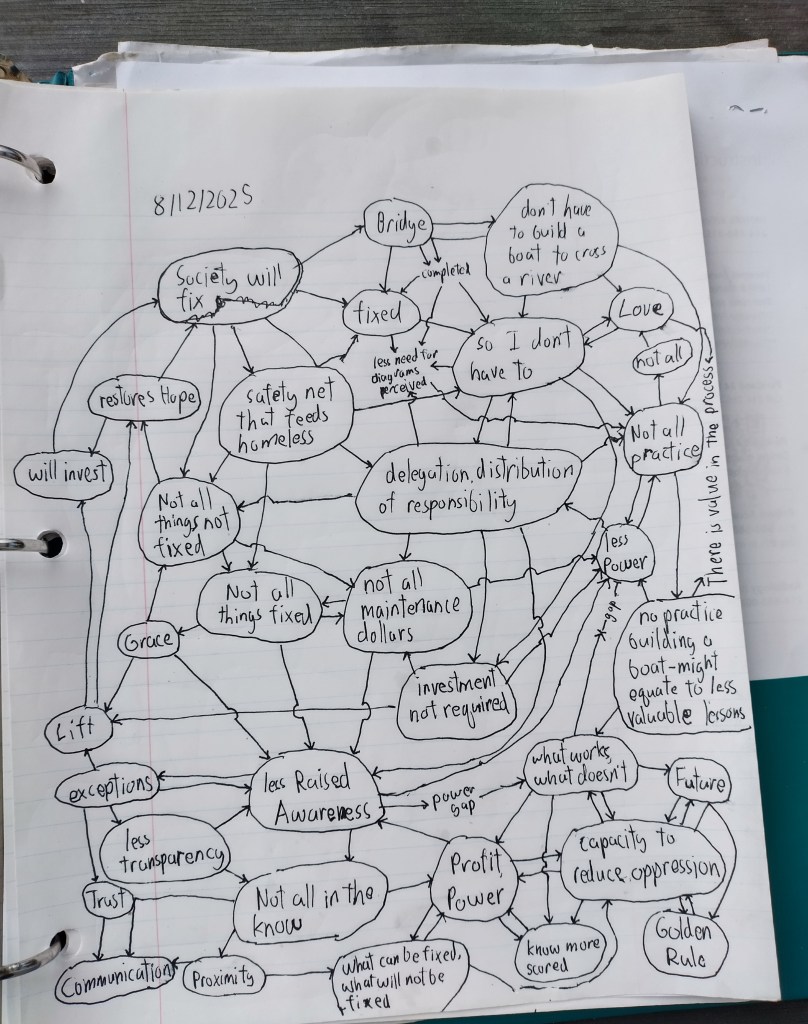 8/12/2025
Bridge
don't have
to build a
boat to cross
a river
Society will
fix
completed
fixed
so I don't
have to
Love
not all
less need for
diagrams
perceived
restores Hope
safety net
that feeds
homeless
Not all
practice
There is value in the process
will invest
delegation, distribution
of responsibility
Not all
things not
fixed
less
Power
gap
Not all
things fixed
not all
maintenance
dollars
no practice
building a
boat-might
equate to less
valuable lessons
Grace
investment
not required
Lift
exceptions
less Raised
Awareness
power
gap
what works,
what doesn't
Future
less
transparency
Profit,
Power
capacity to
reduce oppression
Trust
Not all in the
know
Golden
Rule
Communication
Proximity
what can be fixed,
what will not be
fixed
know more
scored